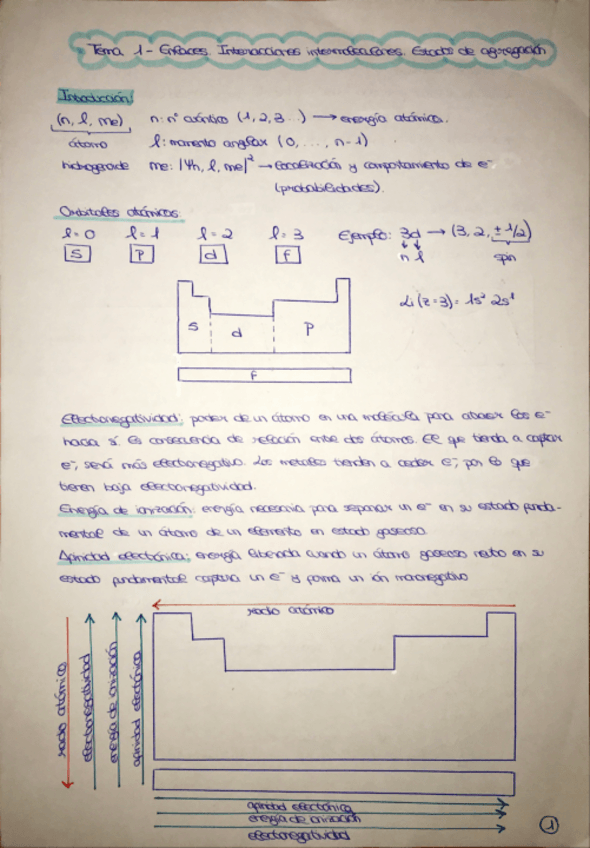 Tema 1 - Enlaces. Interacciones intermoleculares. Estados de agregación
Introducción:
(n, l, me) n: nº cuántico (1, 2, 3...) → energía atómica.
átomo l: momento angular (0, ..., n-1)
hidrogenoide me: |Ψn, l, me|² → localización y comportamiento de e⁻
(probabilidades).
Orbitales atómicos:
l=0 l=1 l=2 l=3 Ejemplo: 3d → (3, 2, ±1/2)
S P d f n l spin
Li (z=3) = 1s² 2s¹
S d P
f
Electronegatividad: poder de un átomo en una molécula para atraer los e⁻
hacia sí. Es consecuencia de relación entre dos átomos. El que tienda a captar
e⁻, será más electronegativo. Los metales tienden a ceder e⁻, por lo que
tienen baja electronegatividad.
Energía de ionización: energía necesaria para separar un e⁻ en su estado funda-
mental de un átomo de un elemento en estado gaseoso.
Afinidad electrónica: energía liberada cuando un átomo gaseoso neutro en su
estado fundamental captura un e⁻ y forma un ión mononegativo
radio atómico
radio atómico
electronegatividad
energía de ionización
afinidad electrónica
afinidad electrónica
energía de ionización
electronegatividad
1